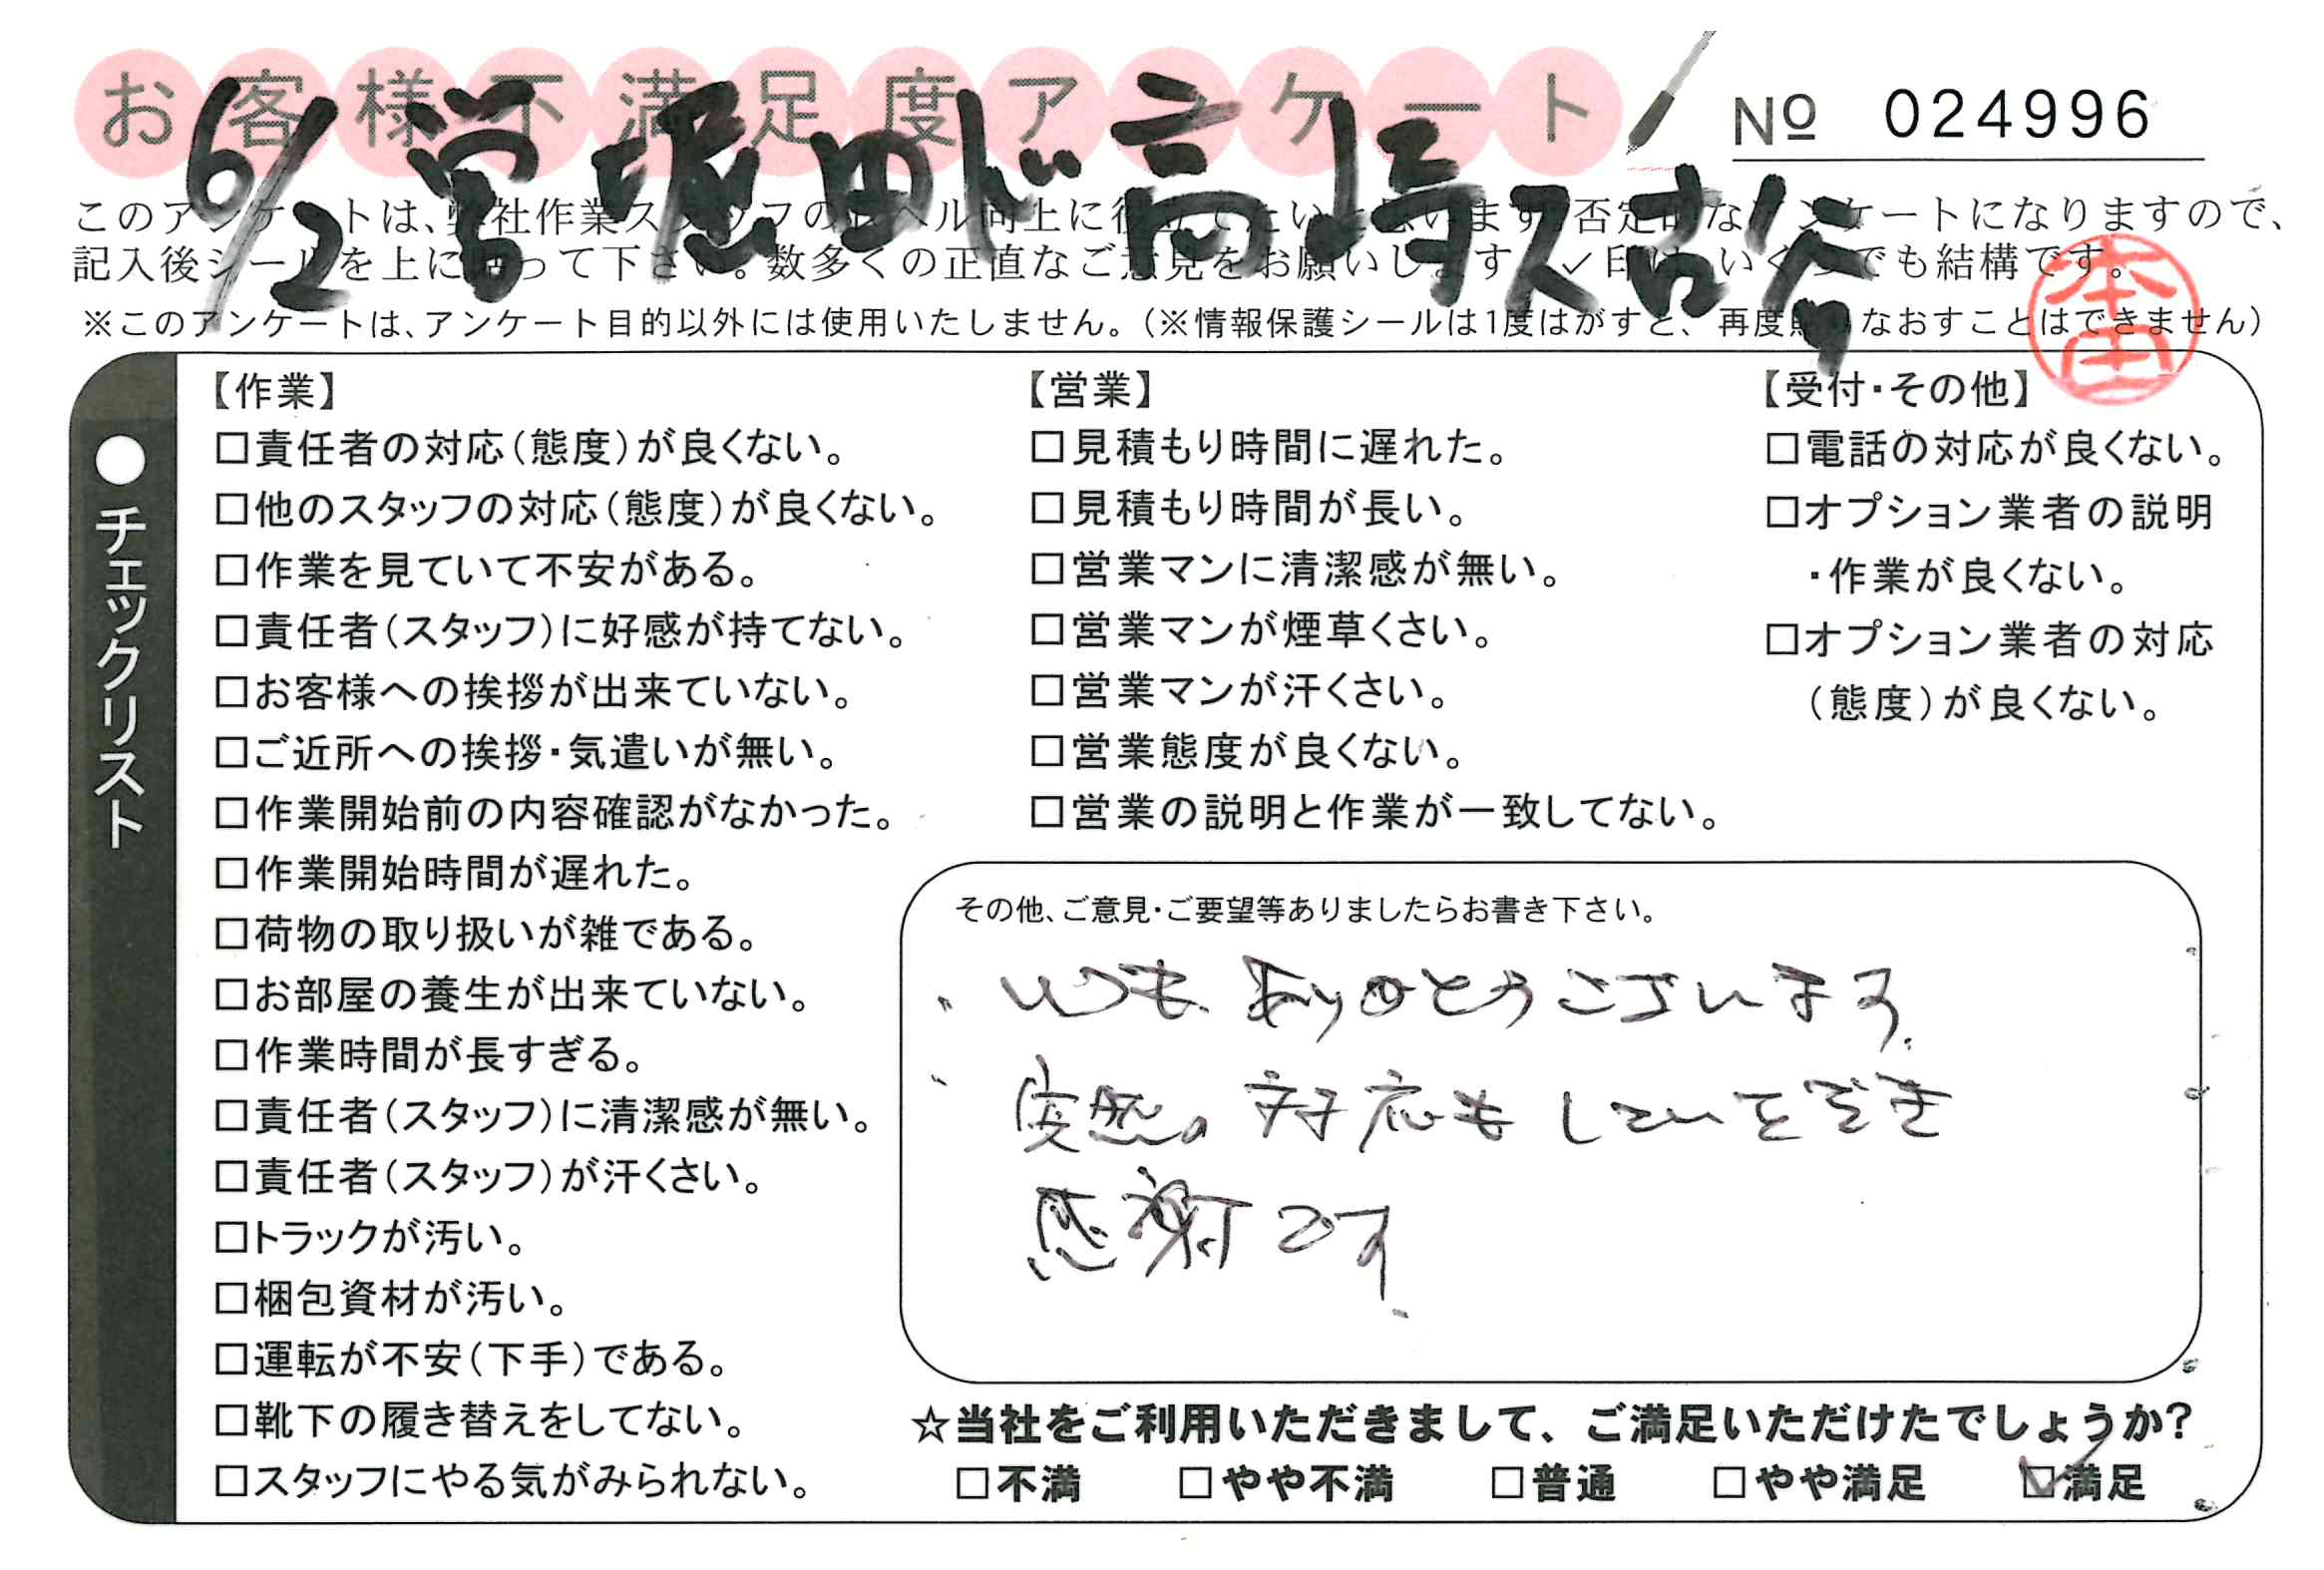 お客様不満足度アンケート
№ 024996
6/2 営 堀田 ド 高崎 ス 古谷
このアンケートは、弊社作業スタッフのレベル向上に役立てたいと思います。否定的なアンケートになりますので、
記入後シールを上に貼って下さい。数多くの正直なご意見をお願いします。✓印は、いくつでも結構です。
※このアンケートは、アンケート目的以外には使用いたしません。（※情報保護シールは1度はがすと、再度貼りなおすことはできません）
本田
●チェックリスト
【作業】
□責任者の対応（態度）が良くない。
□他のスタッフの対応（態度）が良くない。
□作業を見ていて不安がある。
□責任者（スタッフ）に好感が持てない。
□お客様への挨拶が出来ていない。
□ご近所への挨拶・気遣いが無い。
□作業開始前の内容確認がなかった。
□作業開始時間が遅れた。
□荷物の取り扱いが雑である。
□お部屋の養生が出来ていない。
□作業時間が長すぎる。
□責任者（スタッフ）に清潔感が無い。
□責任者（スタッフ）が汗くさい。
□トラックが汚い。
□梱包資材が汚い。
□運転が不安（下手）である。
□靴下の履き替えをしてない。
□スタッフにやる気がみられない。
【営業】
□見積もり時間に遅れた。
□見積もり時間が長い。
□営業マンに清潔感が無い。
□営業マンが煙草くさい。
□営業マンが汗くさい。
□営業態度が良くない。
□営業の説明と作業が一致してない。
【受付・その他】
□電話の対応が良くない。
□オプション業者の説明
・作業が良くない。
□オプション業者の対応
（態度）が良くない。
その他、ご意見・ご要望等ありましたらお書き下さい。
、いつも ありがとうございます。
、突然の 対応も していただき
感謝です。
☆当社をご利用いただきまして、ご満足いただけたでしょうか？
□不満 □やや不満 □普通 □やや満足 ☑満足